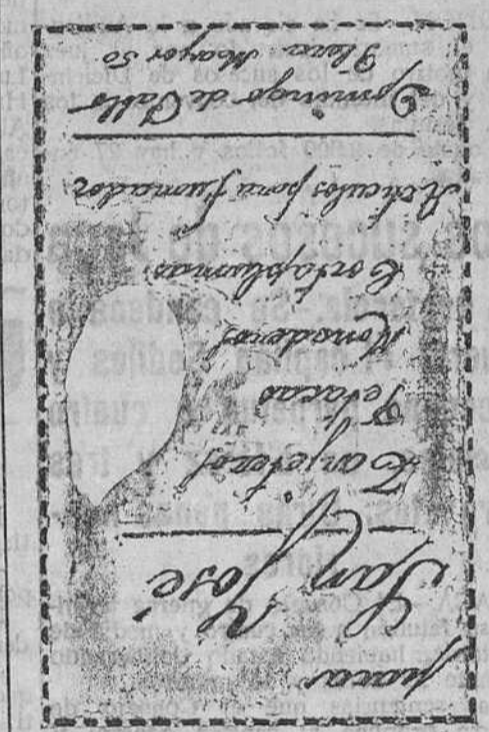 para
San José
Tarjeteros
Petacas
Monederos
Cortaplumas
Artículos para fumador
Domingo de Pablo
Plaza Mayor 50